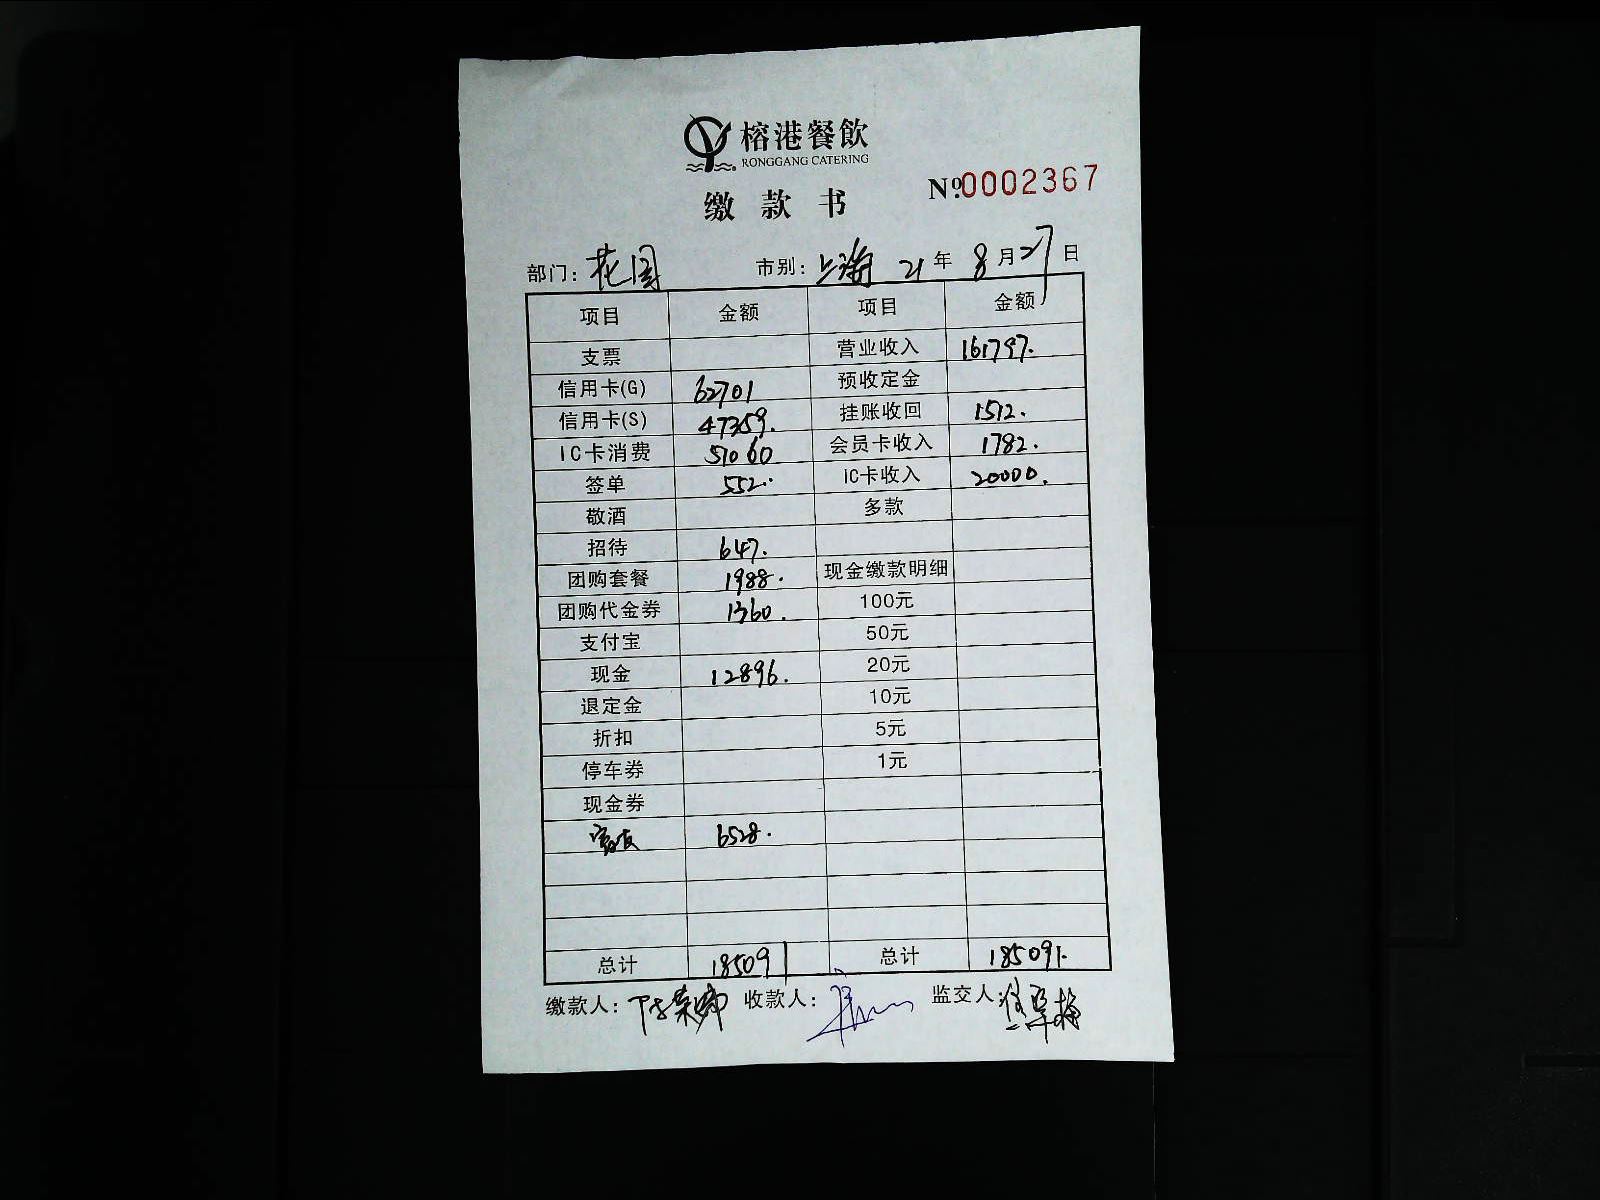 榕港餐飲
RONGGANG CATERING
缴款书
Nº.0002367
部门: 花园 市别: 上海 21年 8月27日
项目 金额 项目 金额
支票 营业收入 161797.
信用卡(G) 62701 预收定金
信用卡(S) 47359. 挂账收回 1512.
IC卡消费 51060 会员卡收入 1782.
签单 552. IC卡收入 20000.
敬酒 多款
招待 647.
团购套餐 1988. 现金缴款明细
团购代金券 1360. 100元
支付宝 50元
现金 12896. 20元
退定金 10元
折扣 5元
停车券 1元
现金券
6528.
总计 185091 总计 185091.
缴款人: 收款人: 监交人: